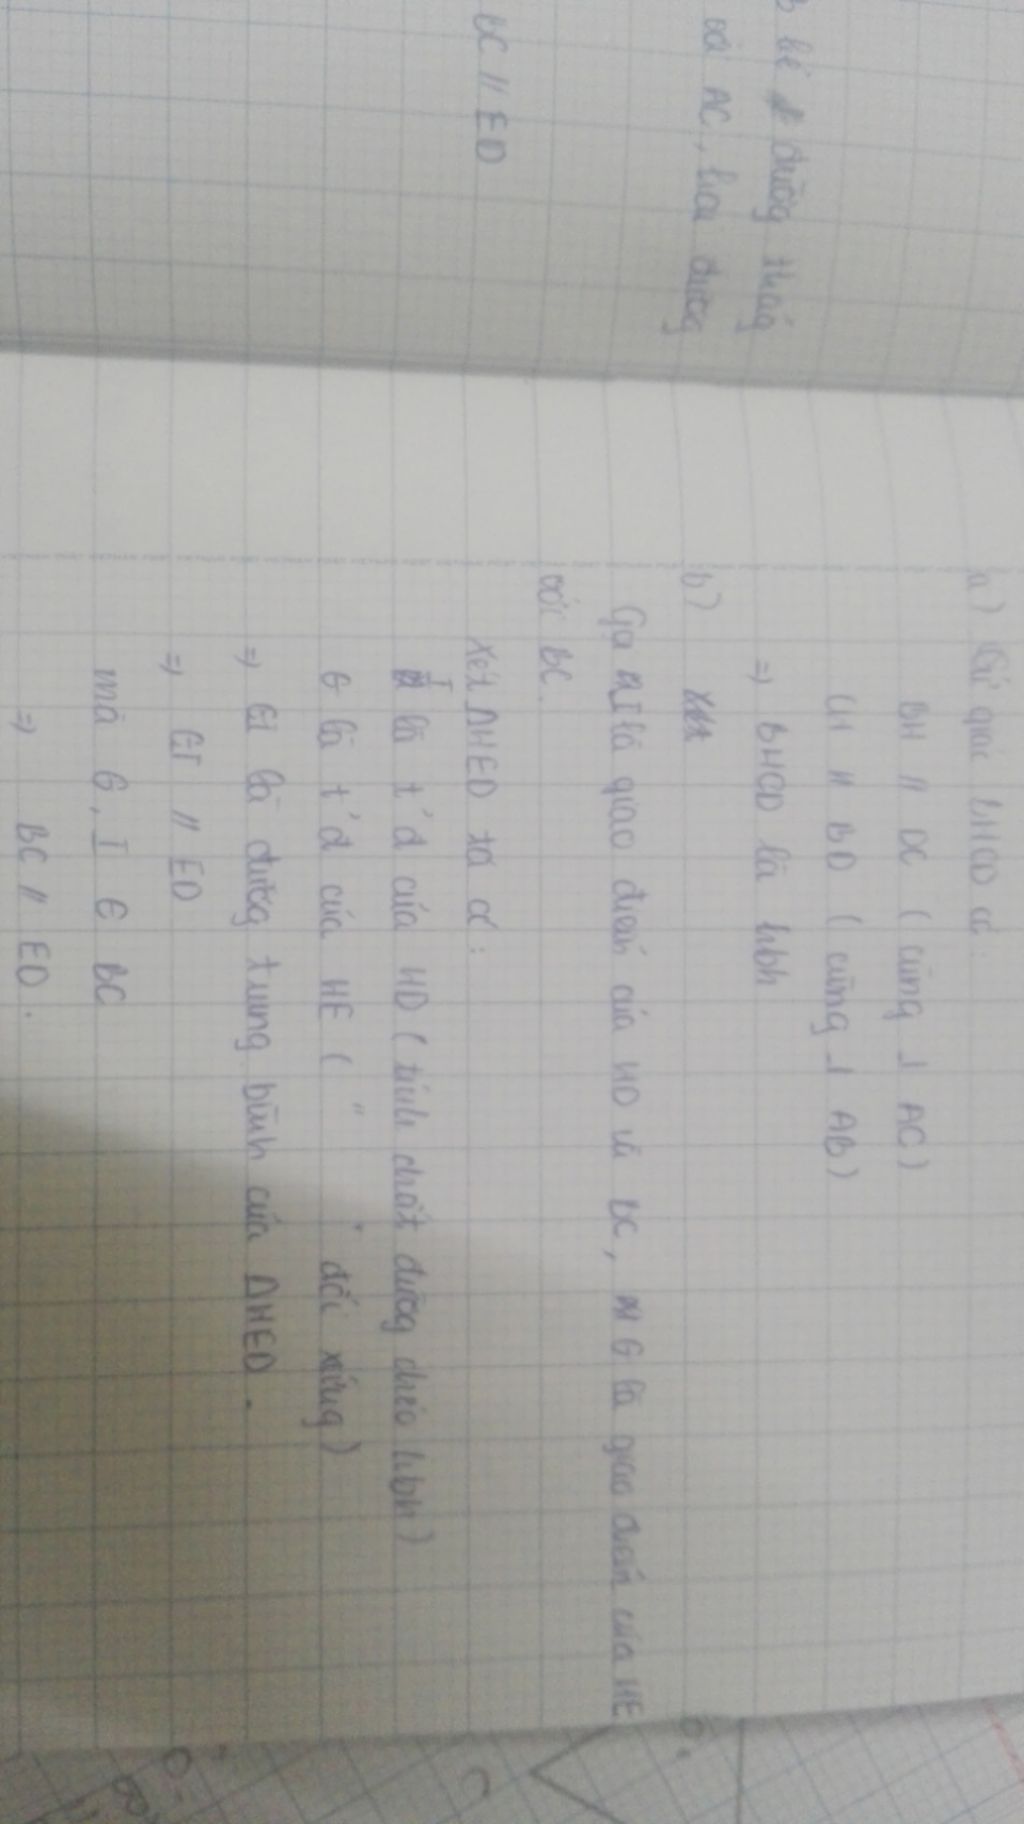 kẻ đường thẳng
với AC, hai đường
BC // ED
a) Tứ giác BHCD có:
BH // DC ( cùng ⊥ AC)
CH // BD ( cùng ⊥ AB)
⇒ BHCD là hbh
b)
Gọi I là giao điểm của HD và BC, G là giao điểm của HE
với BC.
Xét ΔHED ta có:
I là t'đ của HD ( tính chất đường chéo hbh)
G là t'đ của HE ( " đối xứng)
⇒ GI là đường trung bình của ΔHED.
⇒ GI // ED
mà G, I ∈ BC
⇒ BC // ED.